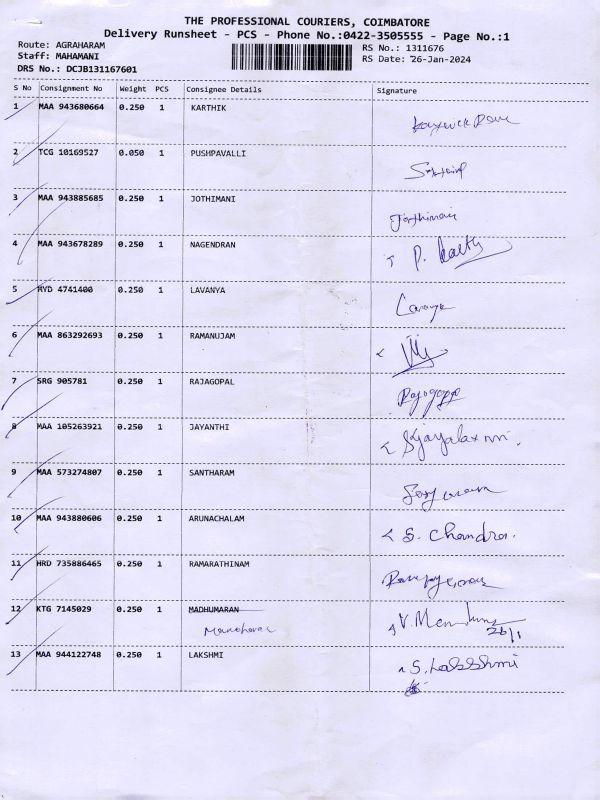 THE PROFESSIONAL COURIERS, COIMBATORE
Delivery Runsheet - PCS - Phone No.:0422-3505555 - Page No.:1
Route: AGRAHARAM
Staff: MAHAMANI
DRS No.: DCJB131167601
RS No.: 1311676
RS Date: 26-Jan-2024
S No Consignment No Weight PCS Consignee Details Signature
1 MAA 943680664 0.250 1 KARTHIK
2 TCG 10169527 0.050 1 PUSHPAVALLI
3 MAA 943885685 0.250 1 JOTHIMANI Jothimani
4 MAA 943678289 0.250 1 NAGENDRAN
5 HYD 4741400 0.250 1 LAVANYA Lavanya
6 MAA 863292693 0.250 1 RAMANUJAM
7 SRG 905781 0.250 1 RAJAGOPAL
8 MAA 105263921 0.250 1 JAYANTHI S.jayalaxmi.
9 MAA 573274807 0.250 1 SANTHARAM
10 MAA 943880606 0.250 1 ARUNACHALAM S. Chandra.
11 HRD 735886465 0.250 1 RAMARATHINAM
12 KTG 7145029 0.250 1 MADHUMARAN
Manoharan
26/1
13 MAA 944122748 0.250 1 LAKSHMI S. Lakshmi